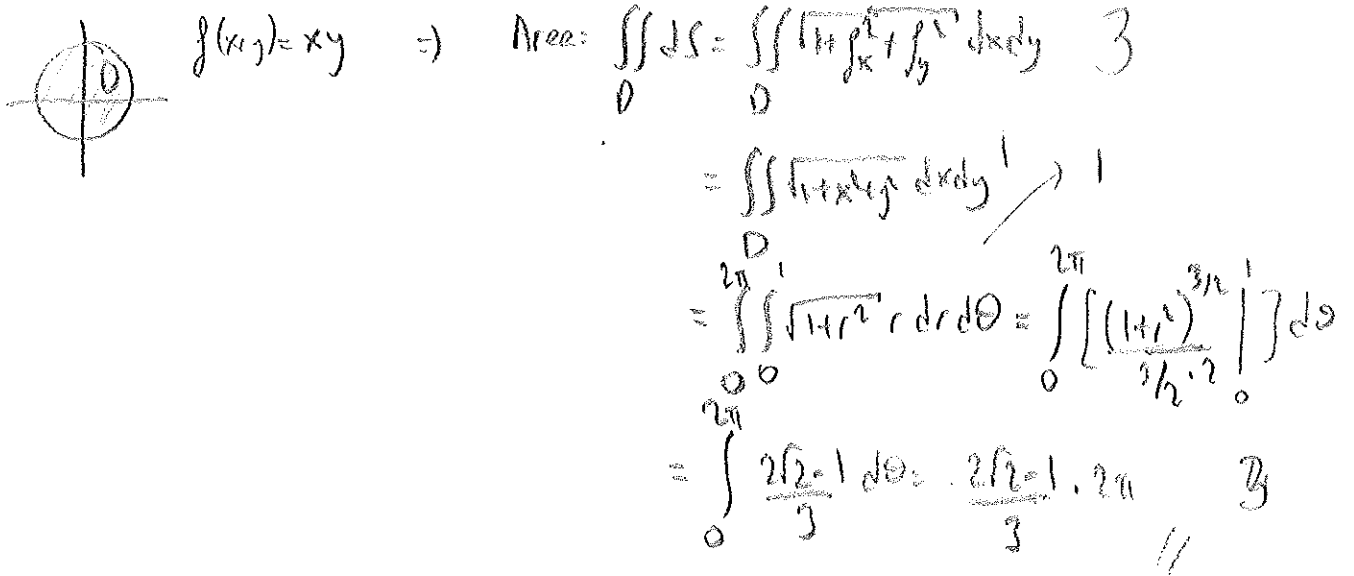 D f(x,y)=xy ⇒ Area: ∬_D dS = ∬_D √(1+f_x²+f_y²) dxdy 3
= ∬_D √(1+x²+y²) dxdy 1 → 1
= ∫_0^{2π} ∫_0^1 √(1+r²) r dr dθ = ∫_0^{2π} [ (1+r²)^{3/2} / (3/2 · 2) |_0^1 ] dθ
= ∫_0^{2π} (2√2-1)/3 dθ = (2√2-1)/3 · 2π //